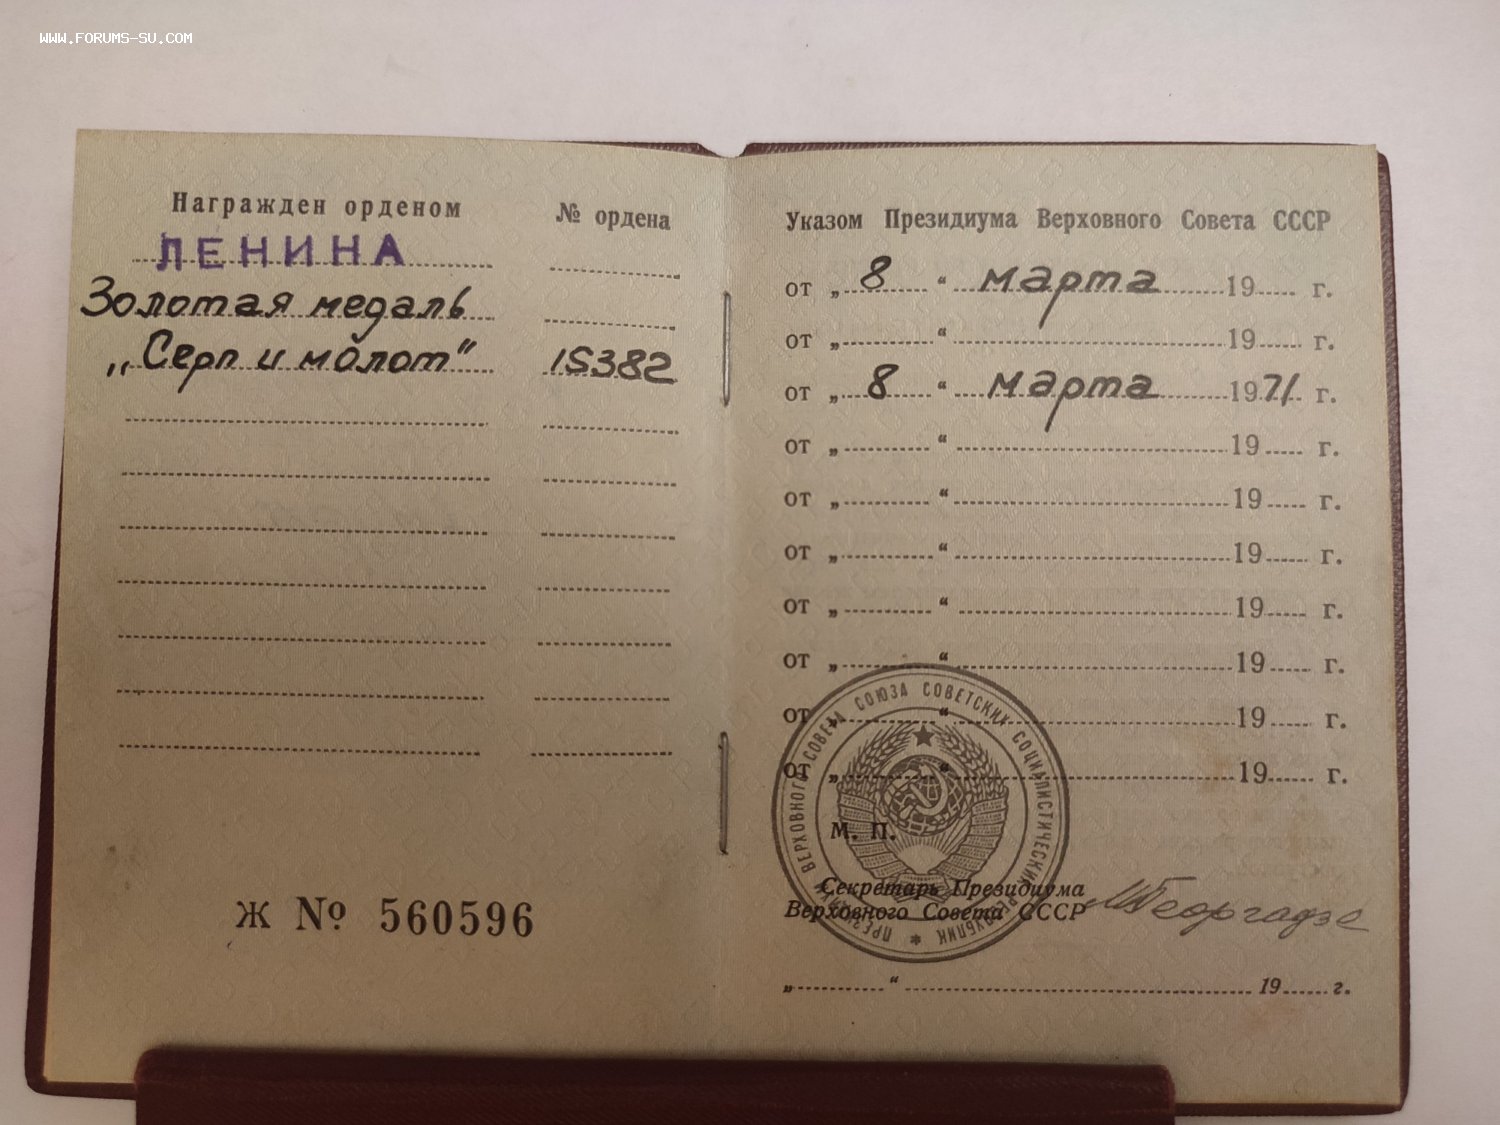 WWW.FORUMS-SU.COM
Награжден орденом № ордена
ЛЕНИНА
Золотая медаль
„Серп и молот“ 15382
Ж № 560596
Указом Президиума Верховного Совета СССР
от „ 8 “ марта 19 г.
от „ “ 19 г.
от „ 8 “ марта 1971 г.
от „ “ 19 г.
от „ “ 19 г.
от „ “ 19 г.
от „ “ 19 г.
от „ “ 19 г.
от „ “ 19 г.
от „ “ 19 г.
ПРЕЗИДИУМ ВЕРХОВНОГО СОВЕТА СОЮЗА СОВЕТСКИХ СОЦИАЛИСТИЧЕСКИХ РЕСПУБЛИК *
М. П.
Секретарь Президиума
Верховного Совета СССР МГеоргадзе
„ “ 19 г.